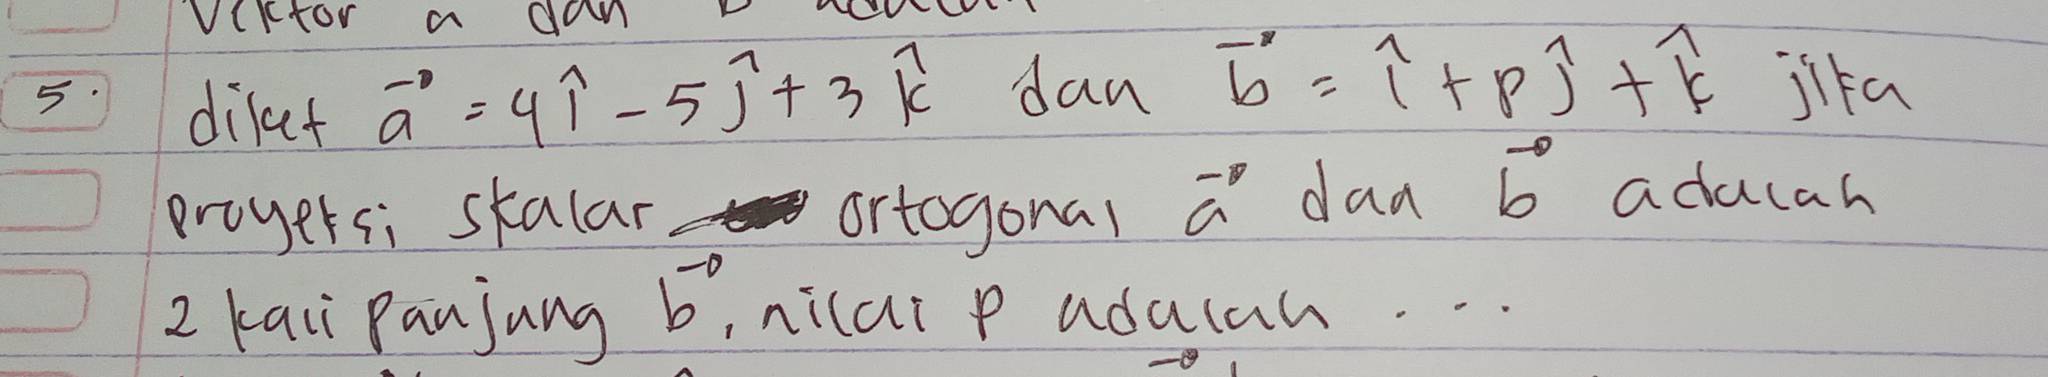 Vektor a dan b adalah
5. diket a⃗ = 4î - 5ĵ + 3k̂ dan b⃗ = î + pĵ + k̂ jika
proyeksi skalar ortogonal a⃗ dan b⃗ adalah
2 kali panjang b⃗, nilai p adalah ...